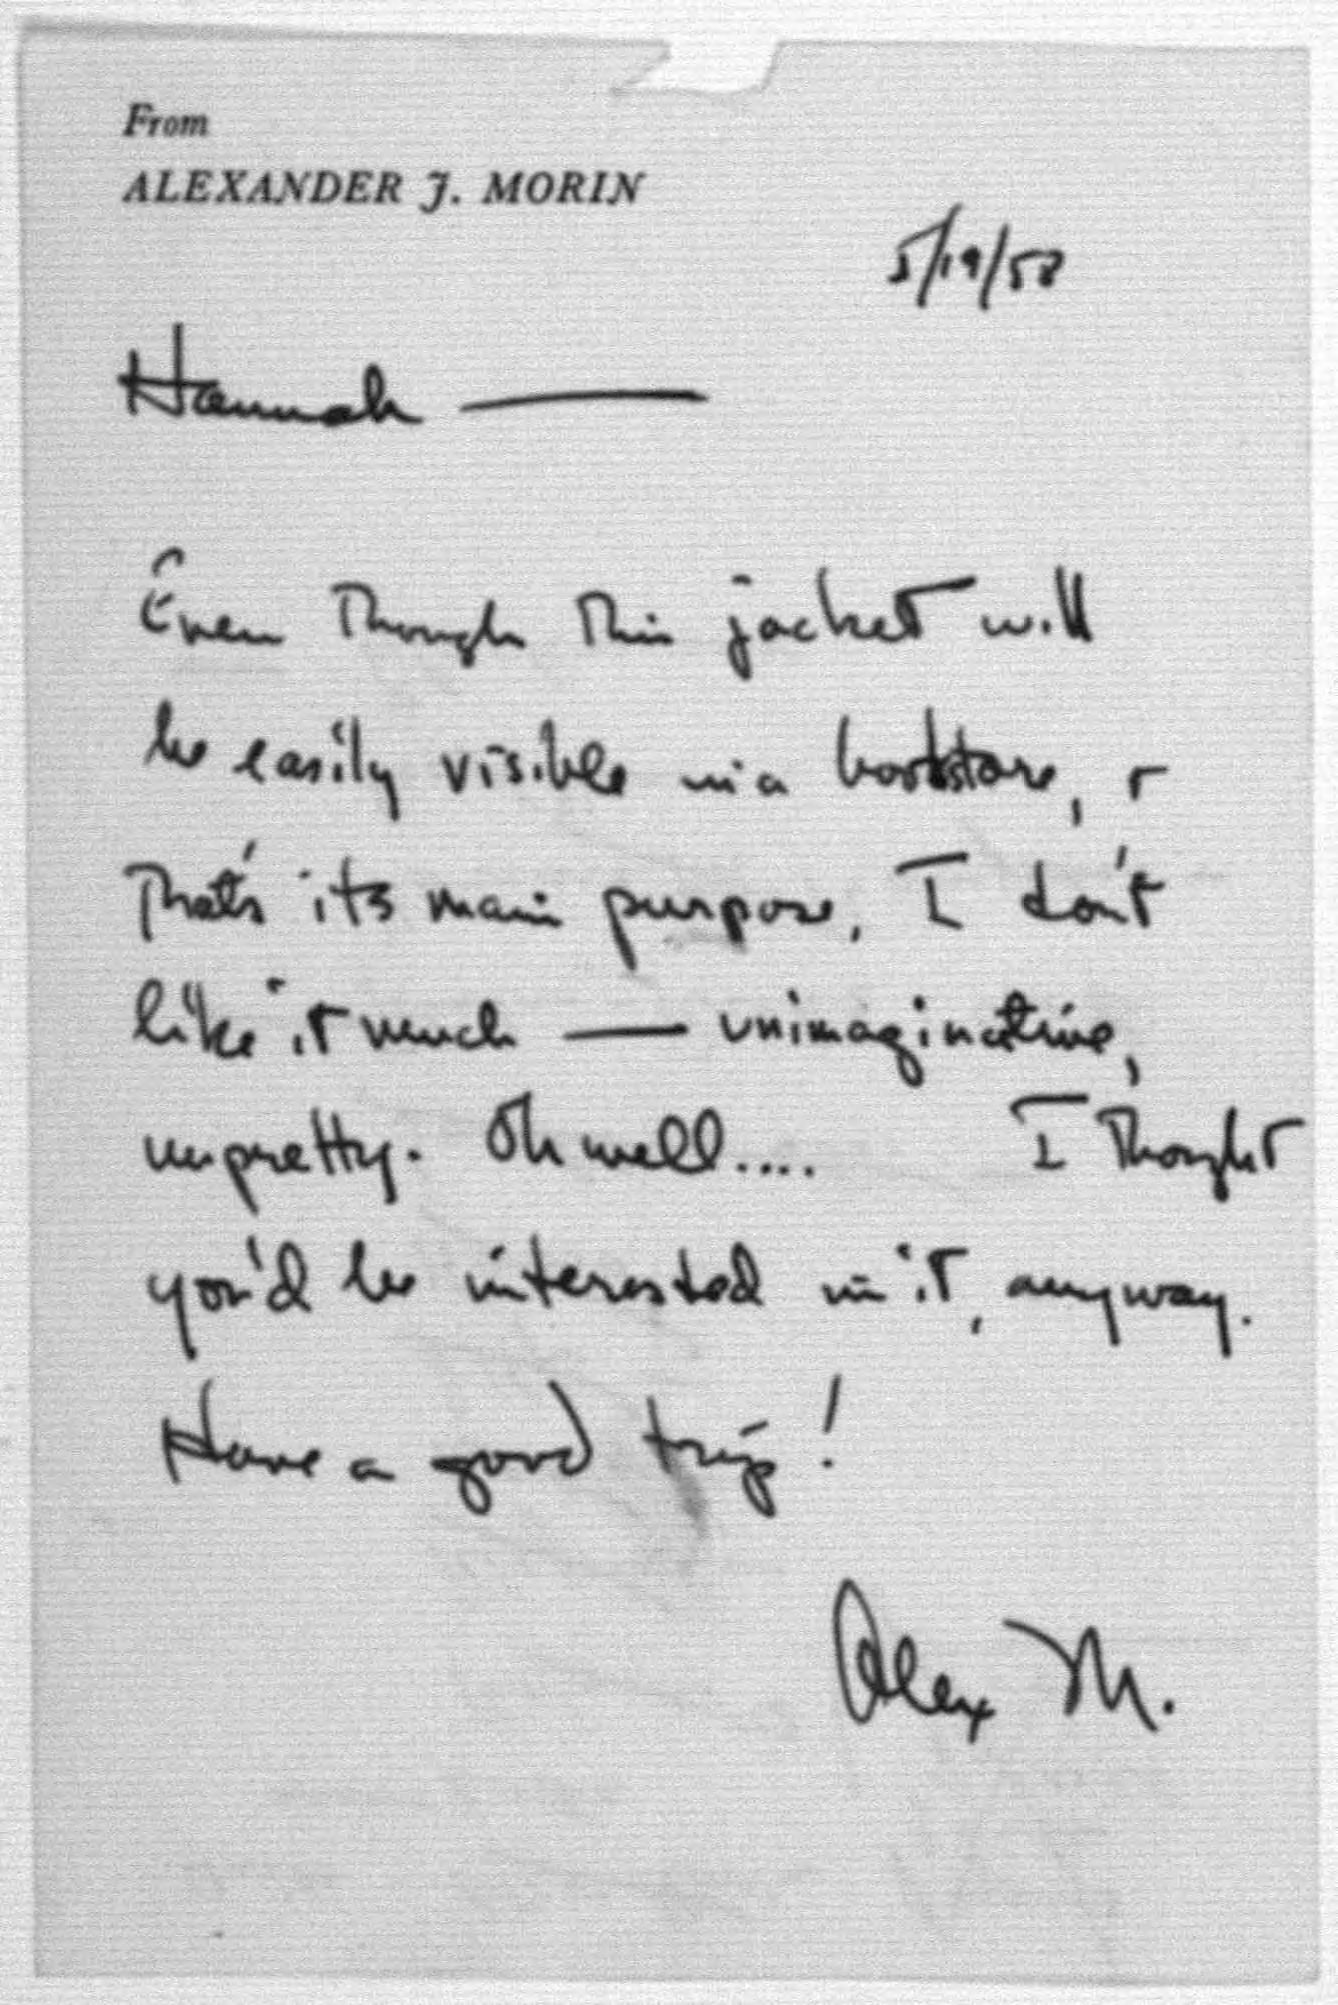 From
ALEXANDER J. MORIN
5/19/58
Hannah —
Even though this jacket will
be easily visible in a bookstore, &
that's its main purpose, I don't
like it much — unimaginative,
unpretty. Oh well.... I thought
you'd be interested in it, anyway.
Have a good trip!
Alex M.